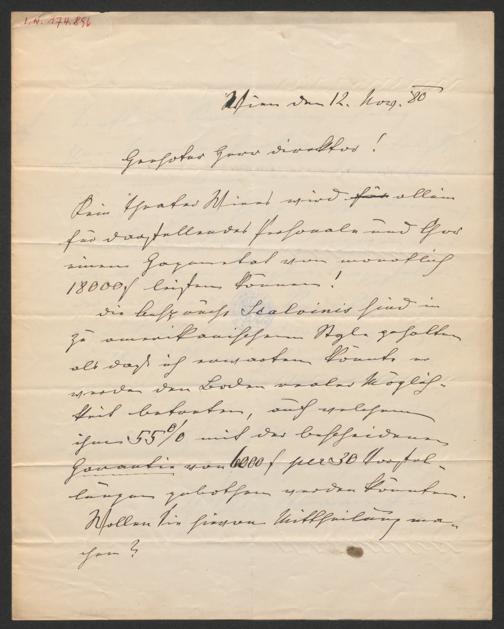 I.N. 174.896
Wien den 12. Nov. 80
Geehrter Herr Direktor!
Kein Theater Wiens wird für allein
für darstellendes Personale und Chor
einen Gagenetat von monatlich
18000 f leisten können!
Die Ansprüche Scalvinis sind in
zu amerikanischem Style gehalten
als daß ich erwarten könnte er
werde den Boden realer Möglich-
keit betreten, auf welchem
ihm 55% mit der bescheidenen
Garantie von 6000 f per 30 Vorstel-
lungen gebothen werden könnten.
Wollen Sie hievon Mittheilung ma-
chen?